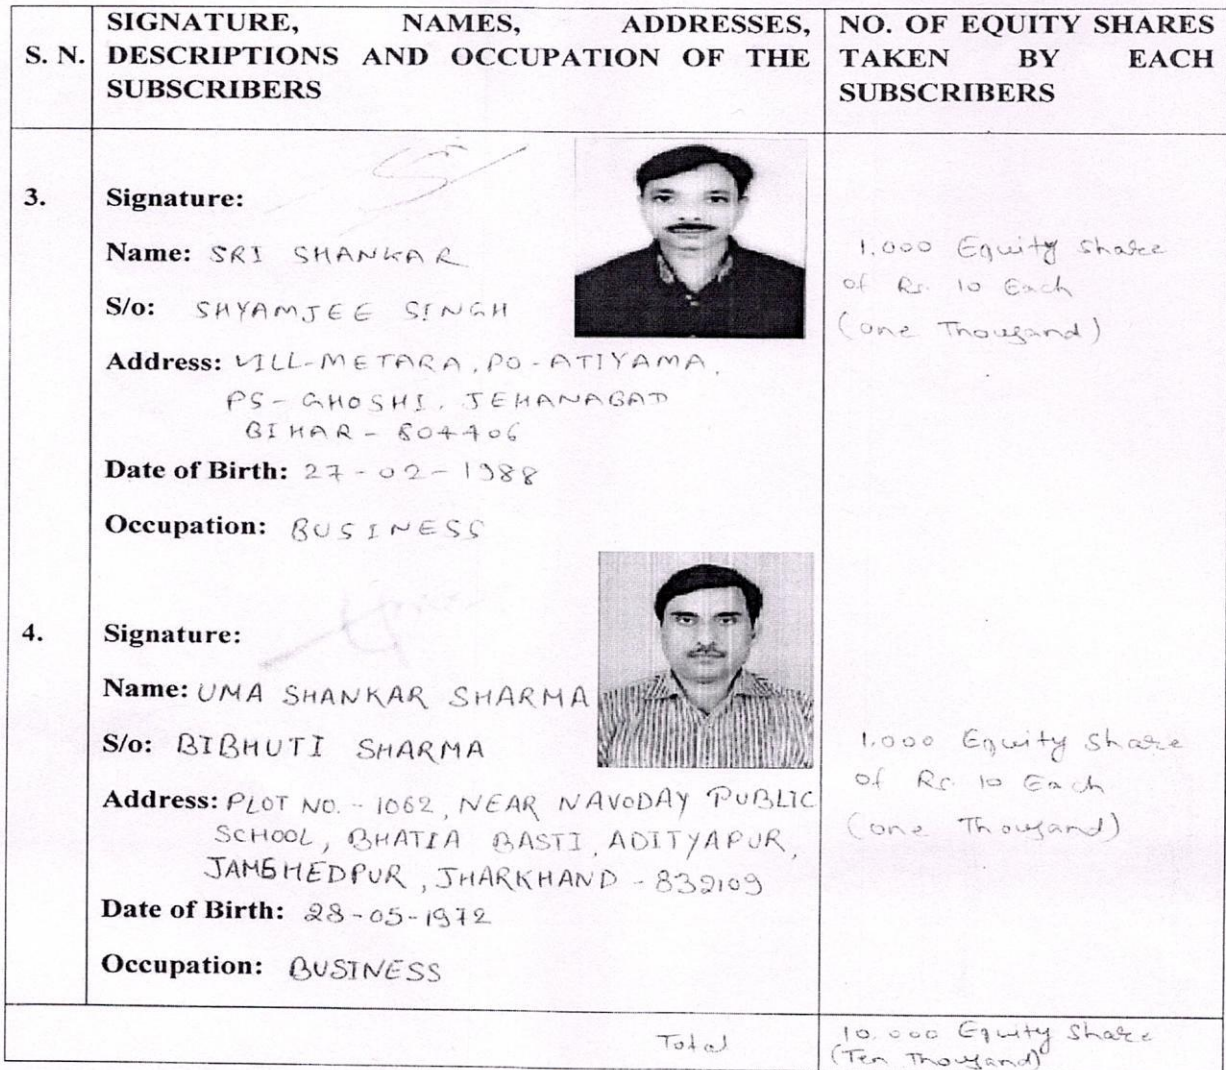 S. N.
SIGNATURE, NAMES, ADDRESSES,
DESCRIPTIONS AND OCCUPATION OF THE
SUBSCRIBERS
NO. OF EQUITY SHARES
TAKEN BY EACH
SUBSCRIBERS
3.
Signature:
Name: SRI SHANKAR
S/o: SHYAMJEE SINGH
Address: VILL-METARA, PO-ATIYAMA,
PS-GHOSHI, JEHANABAD
BIHAR - 804406
Date of Birth: 27-02-1988
Occupation: BUSINESS
1.000 Equity Share
of Rs. 10 Each
(one Thousand)
4.
Signature:
Name: UMA SHANKAR SHARMA
S/o: BIBHUTI SHARMA
Address: PLOT NO. - 1062, NEAR NAVODAY PUBLIC
SCHOOL, BHATIA BASTI, ADITYAPUR,
JAMSHEDPUR, JHARKHAND - 832109
Date of Birth: 28-05-1972
Occupation: BUSINESS
1.000 Equity Share
of Rs. 10 Each
(one Thousand)
Total
10.000 Equity Share
(Ten Thousand)